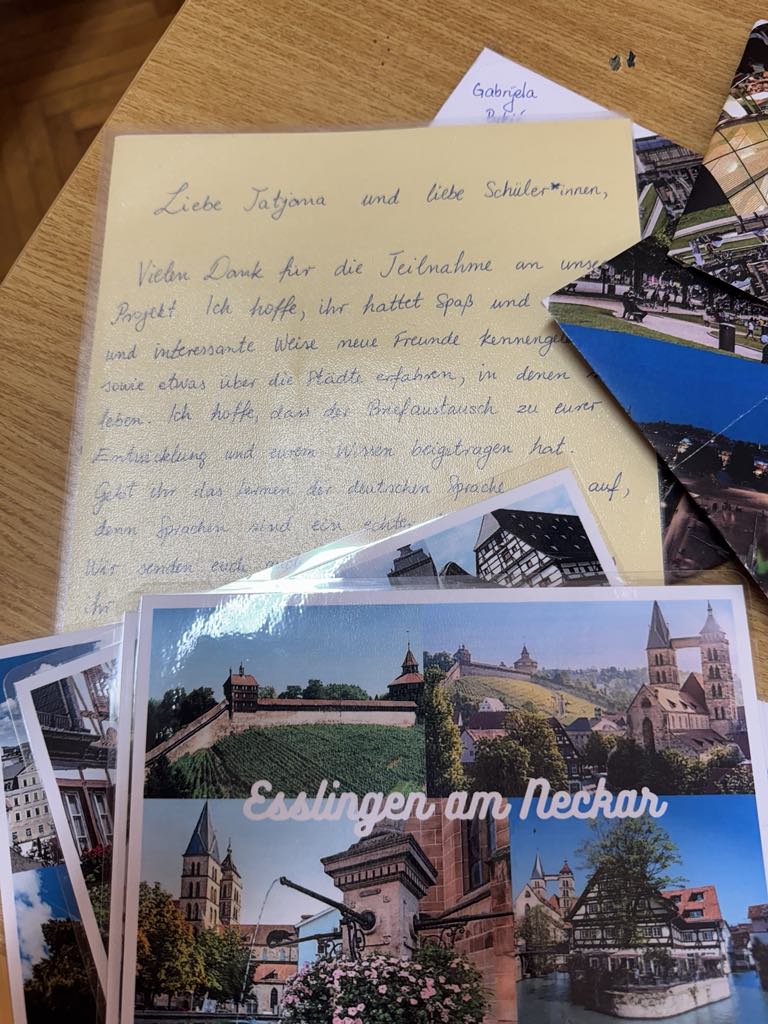 Gabrijela
Liebe Tatjana und liebe Schüler*innen,
Vielen Dank für die Teilnahme an
Projekt. Ich hoffe, ihr hattet Spaß und
und interessante Weise neue Freunde
sowie etwas über die Städte erfahren, in denen
leben. Ich hoffe, dass der Briefaustausch zu eurer
Entwicklung und eurem Wissen beigetragen hat.
Gebt ihr das Lernen der deutschen Sprache auf,
denn Sprachen sind ein
Wir senden euch
ihr
Esslingen am Neckar